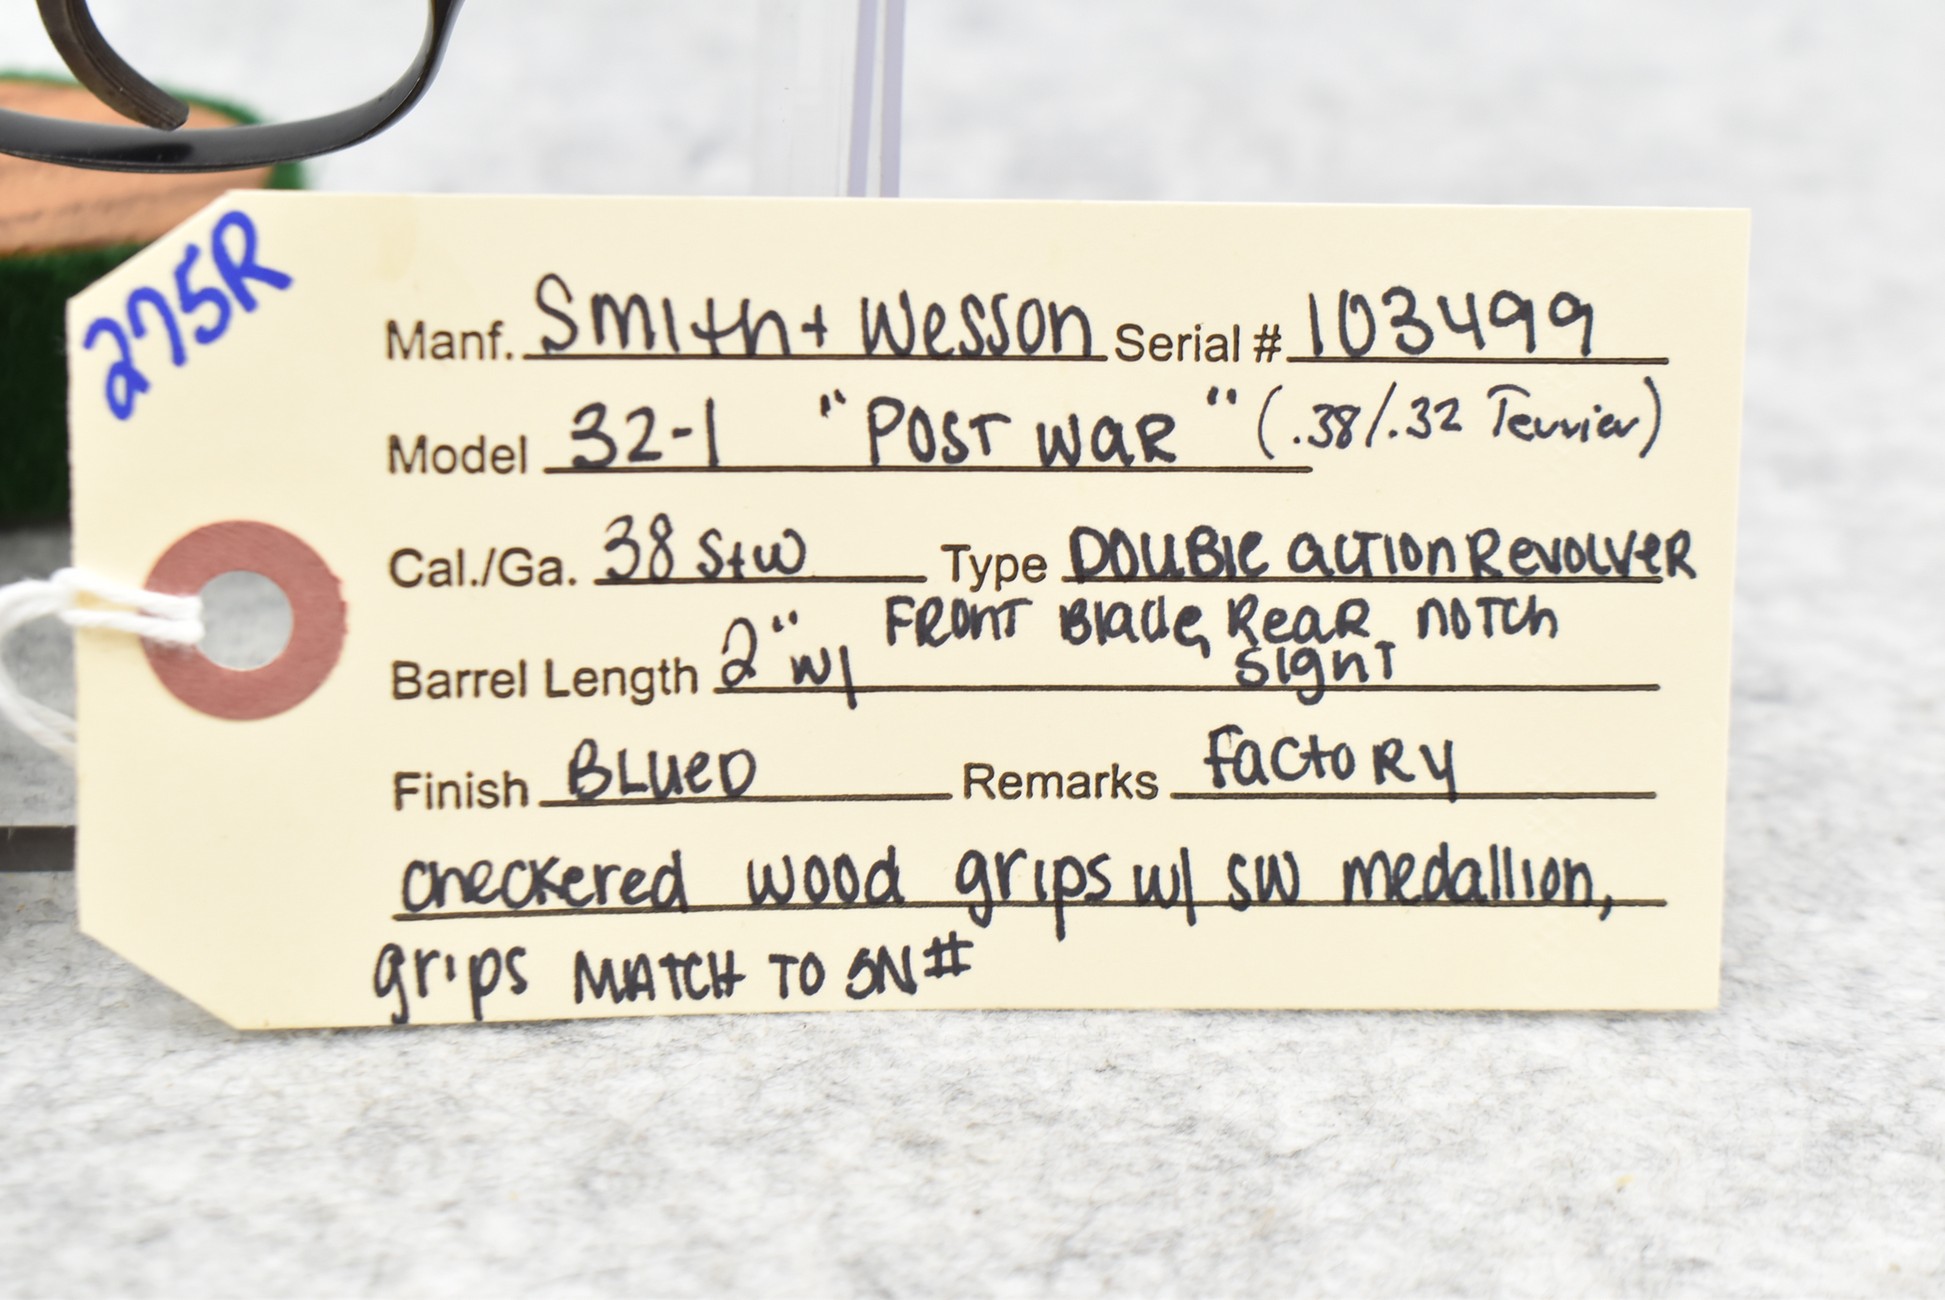 275R
Manf. Smith + Wesson Serial # 103499
Model 32-1 "POST WAR" (.38/.32 Terrier)
Cal./Ga. 38 S+W Type DOUBLE ACTION REVOLVER
Barrel Length 2" w/ FRONT Blade, Rear notch
sight
Finish BLUED Remarks factory
checkered wood grips w/ SW medallion,
grips MATCH TO SN#